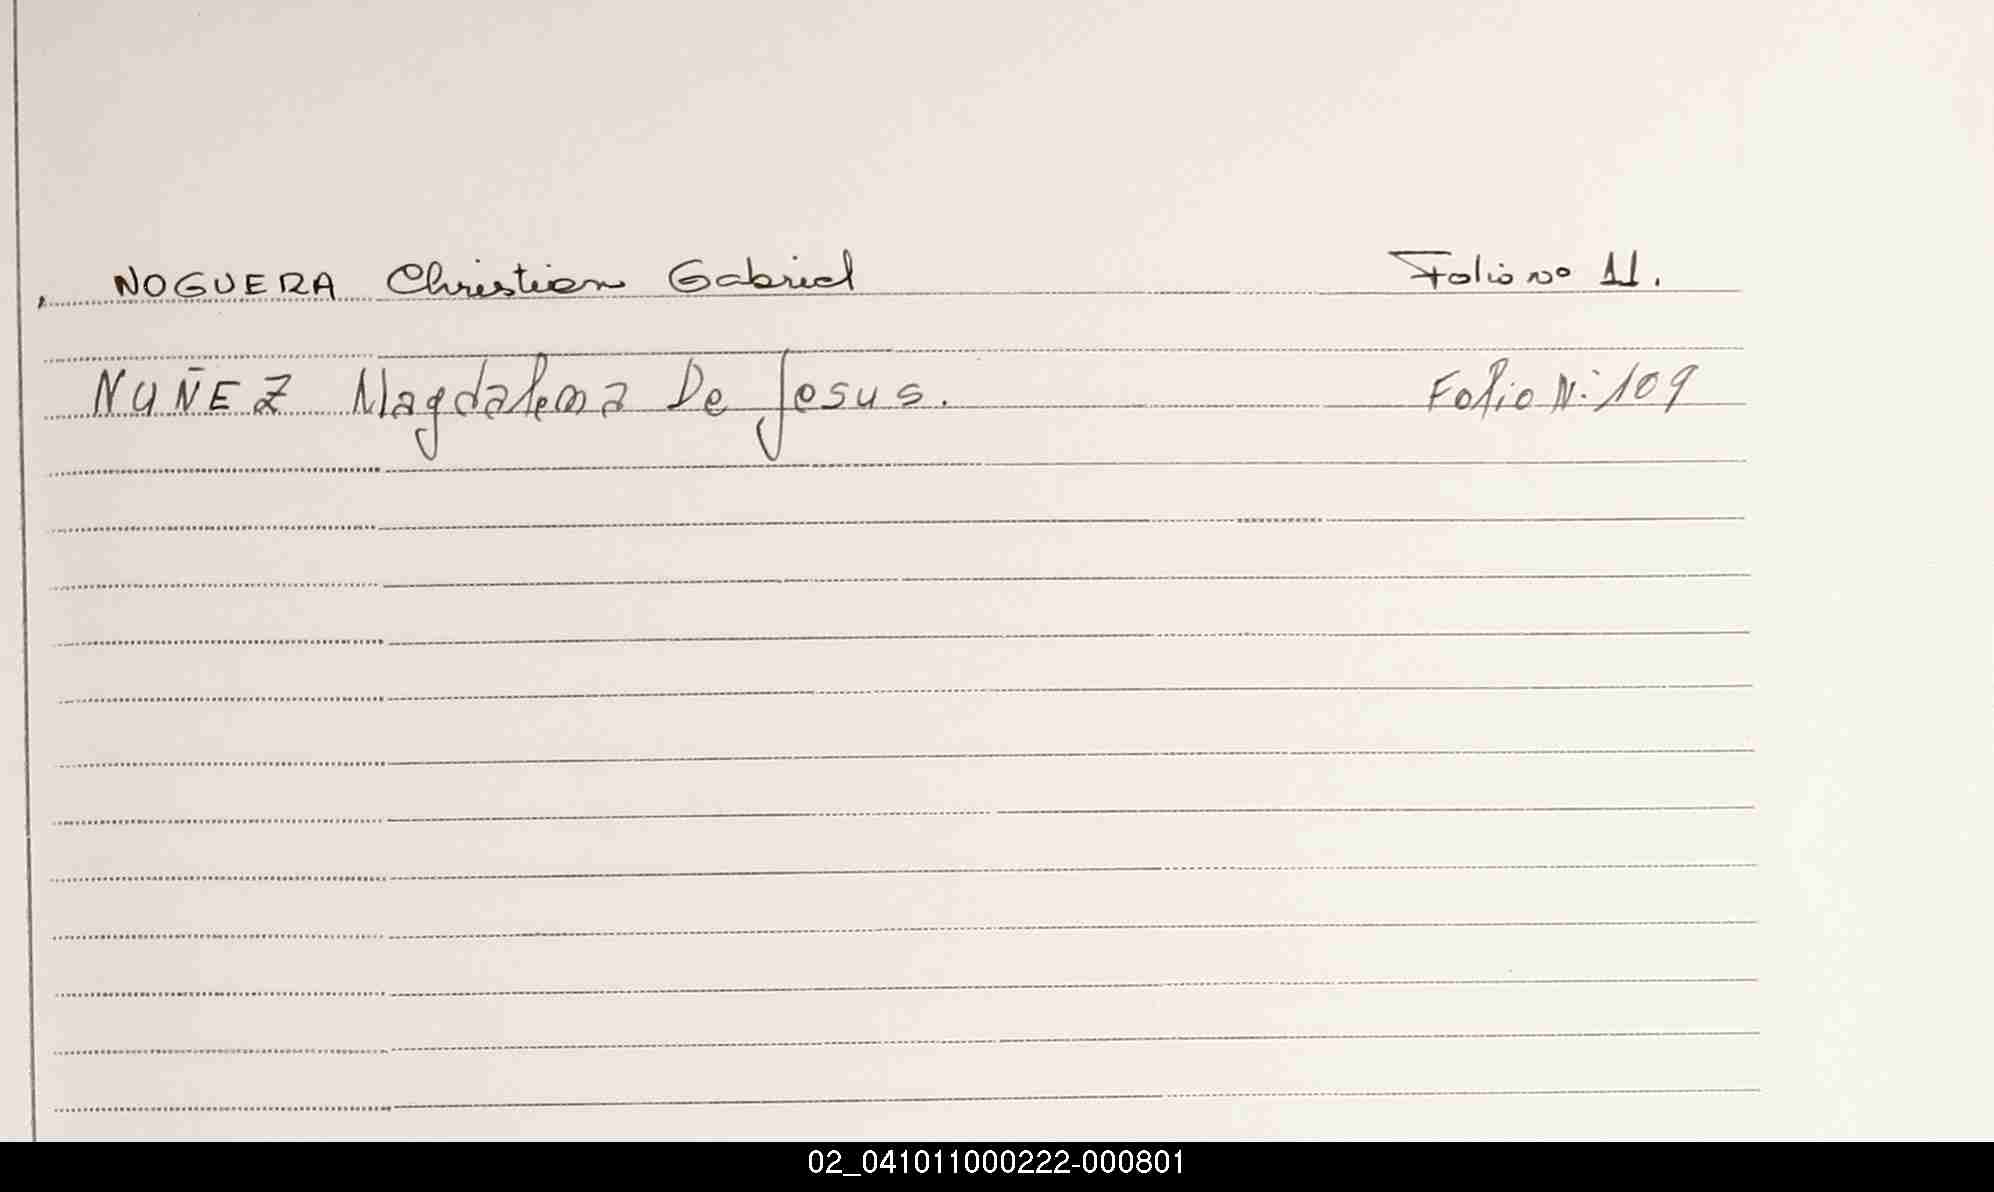 NOGUERA Christian Gabriel Folio nº 11.
NUÑEZ Magdalena De Jesus. Folio Nº 109
02_041011000222-000801